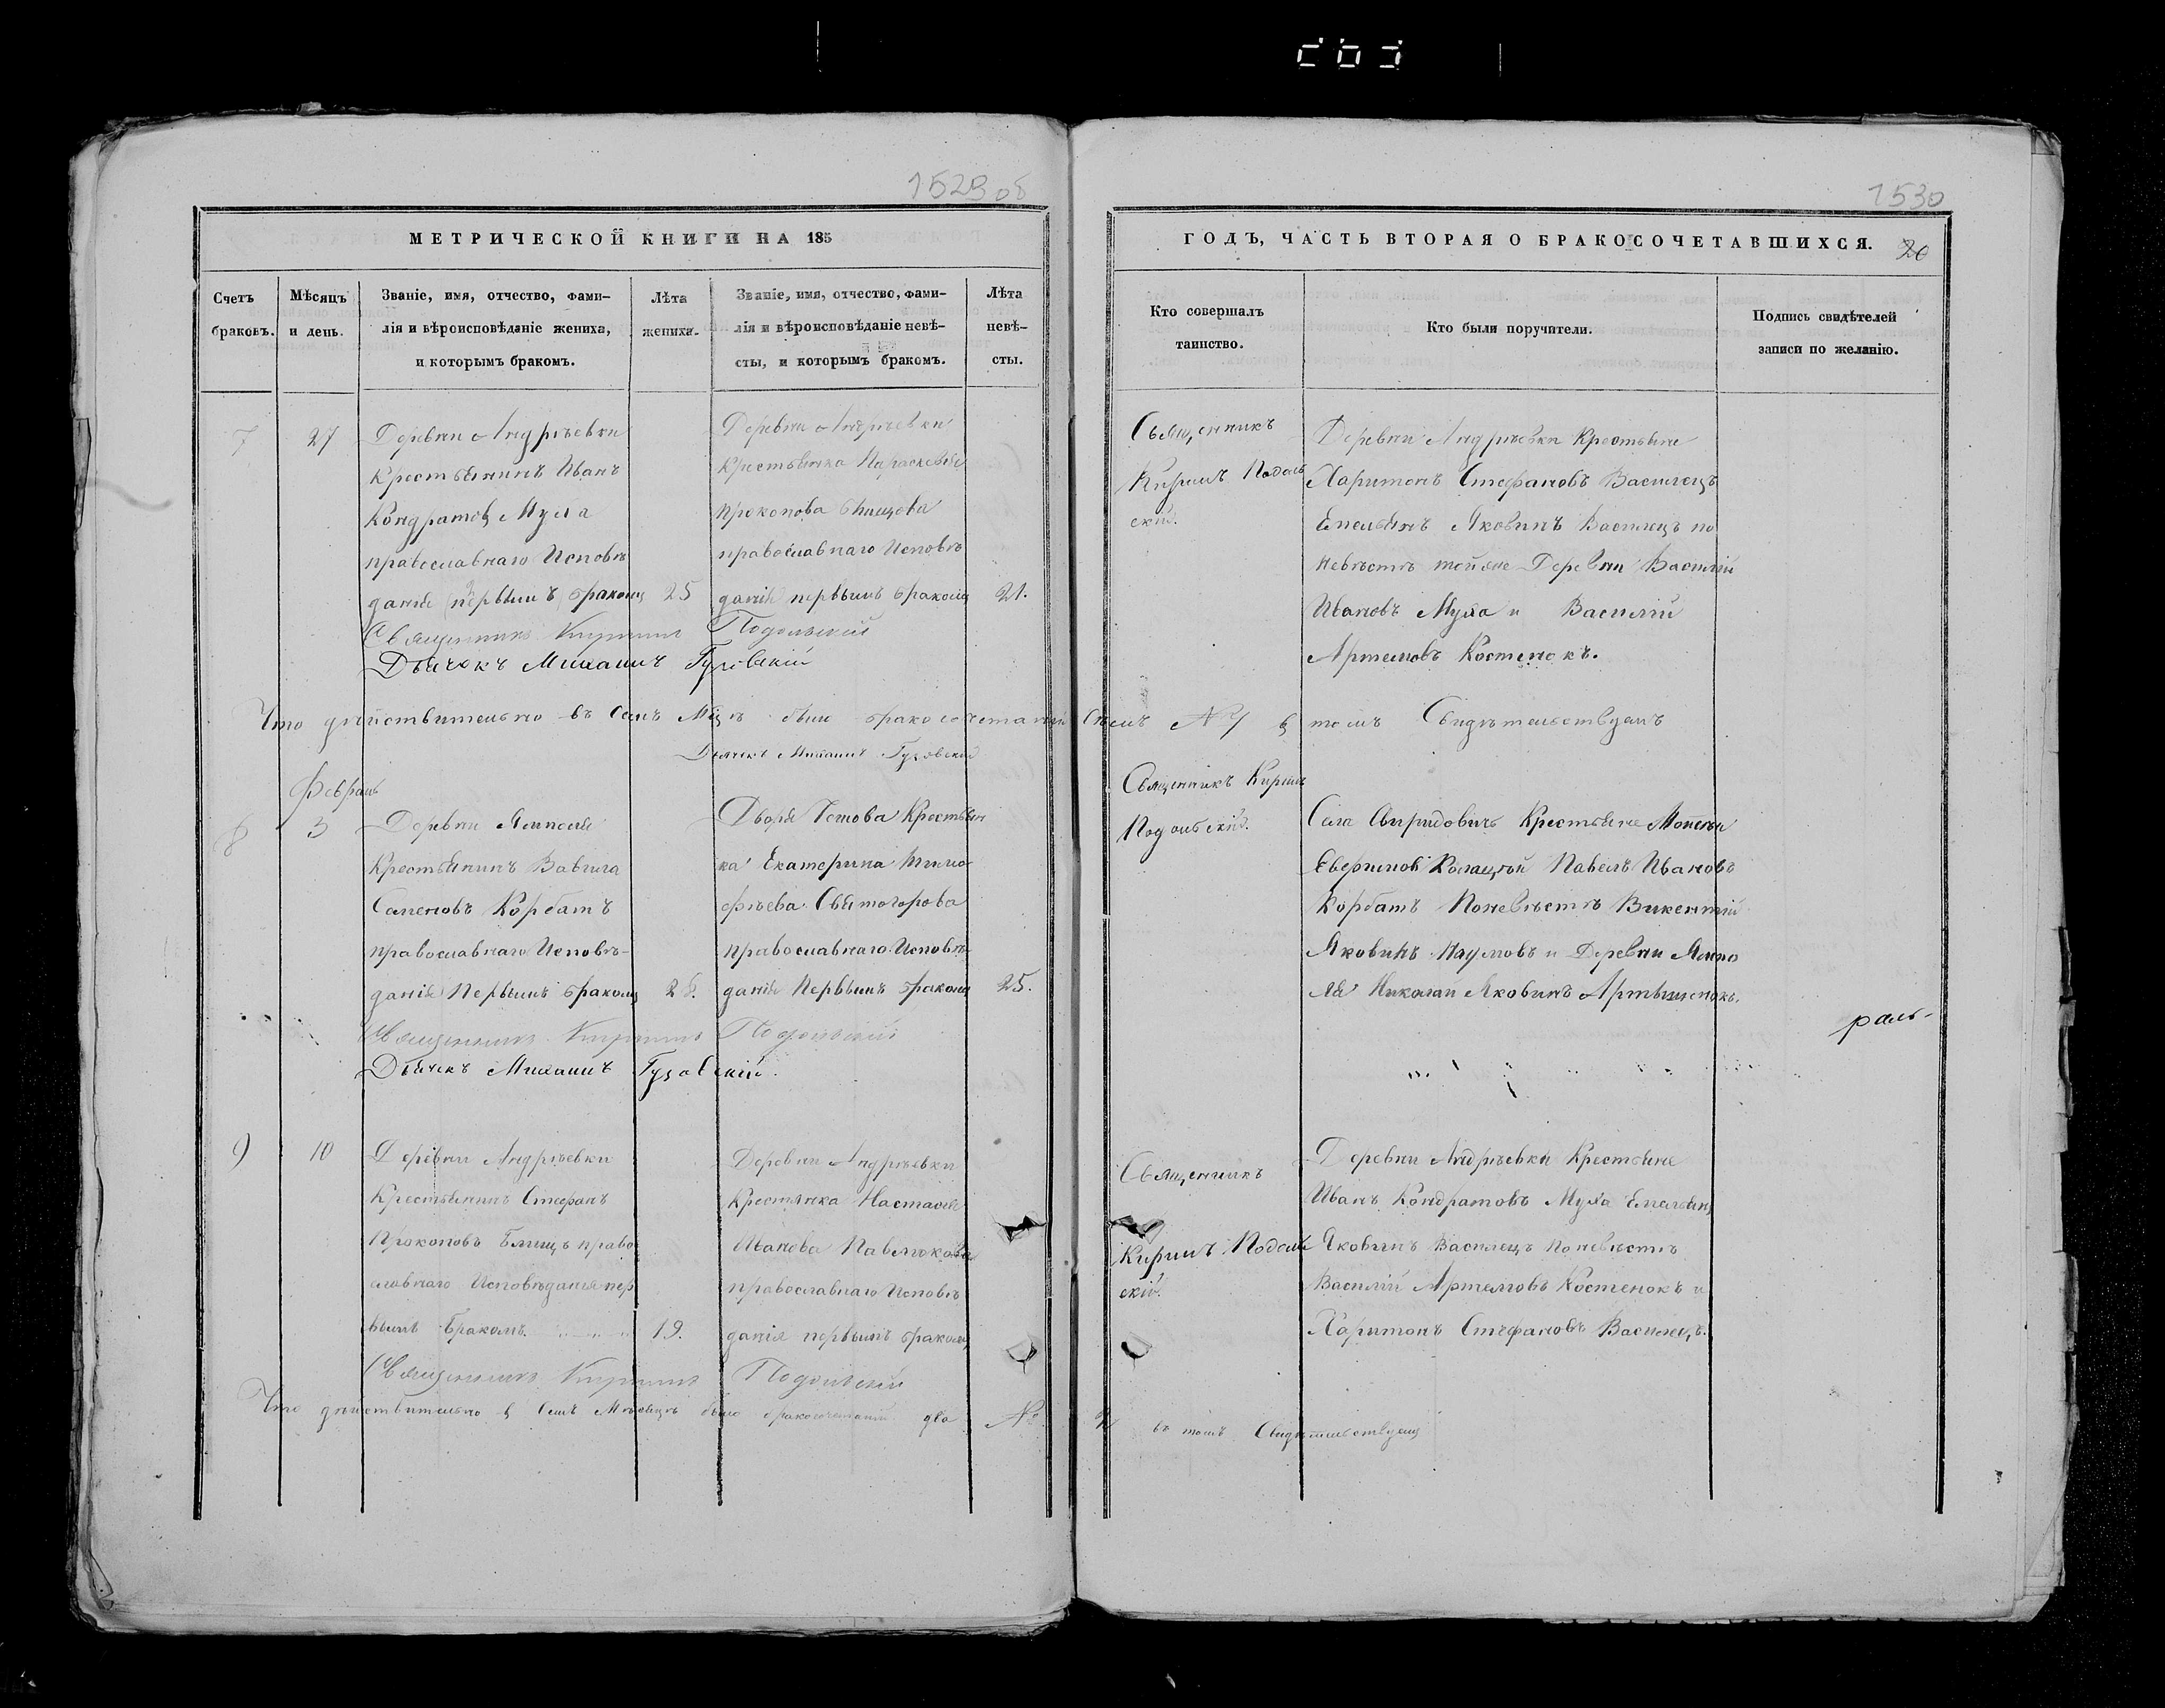 1529 об
1530
МЕТРИЧЕСКОЙ КНИГИ НА 185
ГОДЪ, ЧАСТЬ ВТОРАЯ О БРАКОСОЧЕТАВШИХСЯ.
20
Счетъ
браковъ.
Мѣсяцъ
и день.
Званіе, имя, отчество, фами-
лія и вѣроисповѣданіе жениха,
и которымъ бракомъ.
Лѣта
жениха.
Званіе, имя, отчество, фами-
лія и вѣроисповѣданіе невѣ-
сты, и которымъ бракомъ.
Лѣта
невѣ-
сты.
Кто совершалъ
таинство.
Кто были поручители.
Подпись свидѣтелей
записи по желанію.
7
27
Деревни Андрѣевки
Крестьянинъ Иванъ
Кондратов Муха
православнаго Исповѣ
данія первымъ бракомъ
25
Деревни Андрѣевки
крестьянка Параскевія
прокопова
православнаго Исповѣ
данія первымъ бракомъ
21.
Священникъ
Кирилъ Подоль
скій.
Деревни Андрѣевки Крестьяне
Харитонъ Стефановъ Василецъ
Емельянъ Яковинъ Василецъ по
невѣстѣ той же Деревни Василій
Ивановъ Муха и Василій
Артемовъ Костенокъ.
Священникъ Кирилъ Подольскій
Дьячекъ Михаилъ Гузовскій
Что дѣйствительно въ семъ Мцѣ было бракосочетаній семь № 7 в томъ Свидѣтельствуемъ
Дьячекъ Михаилъ Гузовскій
Священникъ Кирилъ
Подольскій.
Февраль
8
3
Деревни
Крестьянинъ Вавила
Семеновъ Корбатъ
православнаго Исповѣ-
данія Первымъ бракомъ
Двора Крестьян
ка Екатерина Тимо
фѣева Святогорова
православнаго Исповѣ-
данія Первымъ бракомъ
25.
Села Свиридовичъ Крестьяне
Павелъ Ивановъ
Корбатъ Поневѣстѣ Викентій
Яковинъ Наумовъ и Деревни
Николай Яковинъ
раль-
Священникъ Кирилъ Подольскій
Дьячекъ Михаилъ Гузовскій.
9
10
Деревни Андрѣевки
Крестьянинъ Стефанъ
Прокоповъ Блищъ право
славнаго Исповѣданія пер
вымъ Бракомъ.
19.
Деревни Андрѣевки
Крестянка Настасія
Иванова Павлюкова
православнаго Исповѣ
данія первымъ бракомъ
Священникъ
Кирилъ Подоль
скій.
Деревни Андрѣевки Крестьяне
Иванъ Кондратовъ Муха Емельян
Яковинъ Василецъ Поневѣстѣ
Василій Артемовъ Костенокъ и
Харитонъ Стефановъ Василецъ.
Священникъ Кирилъ Подольскій
Что дѣйствительно в семъ Мѣсяцѣ было бракосочетаній два № 2 въ томъ Свидѣтельствуемъ